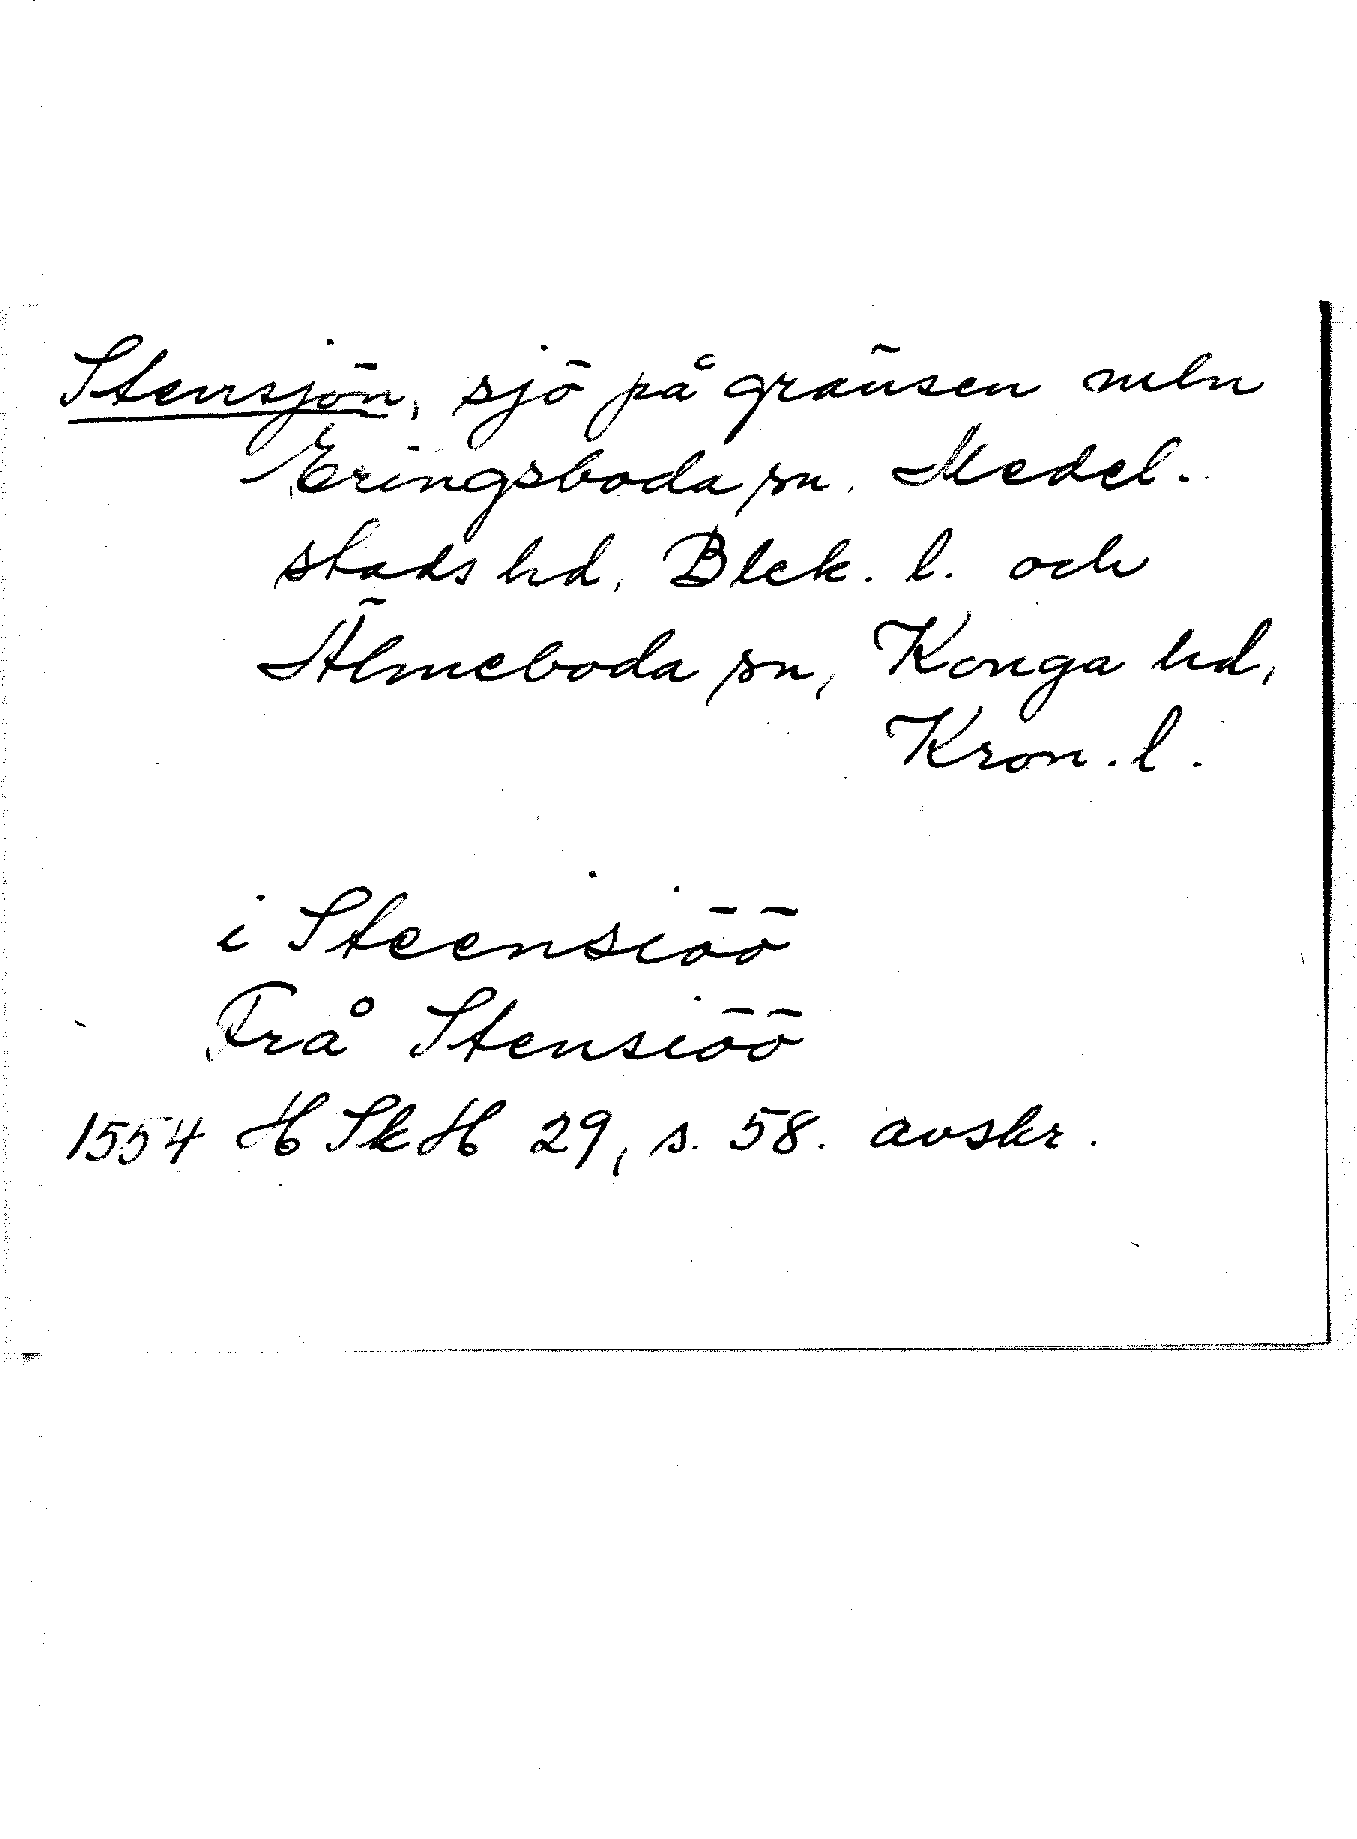 Stensjön, sjö på gränsen mln
Eringsboda sn. Medel-
stads hd, Blek. l. och
Älmeboda sn, Konga hd,
Kron. l.
i Steensiöö
Frå Stensiöö
1554 H Sk H 29, s. 58. avskr.